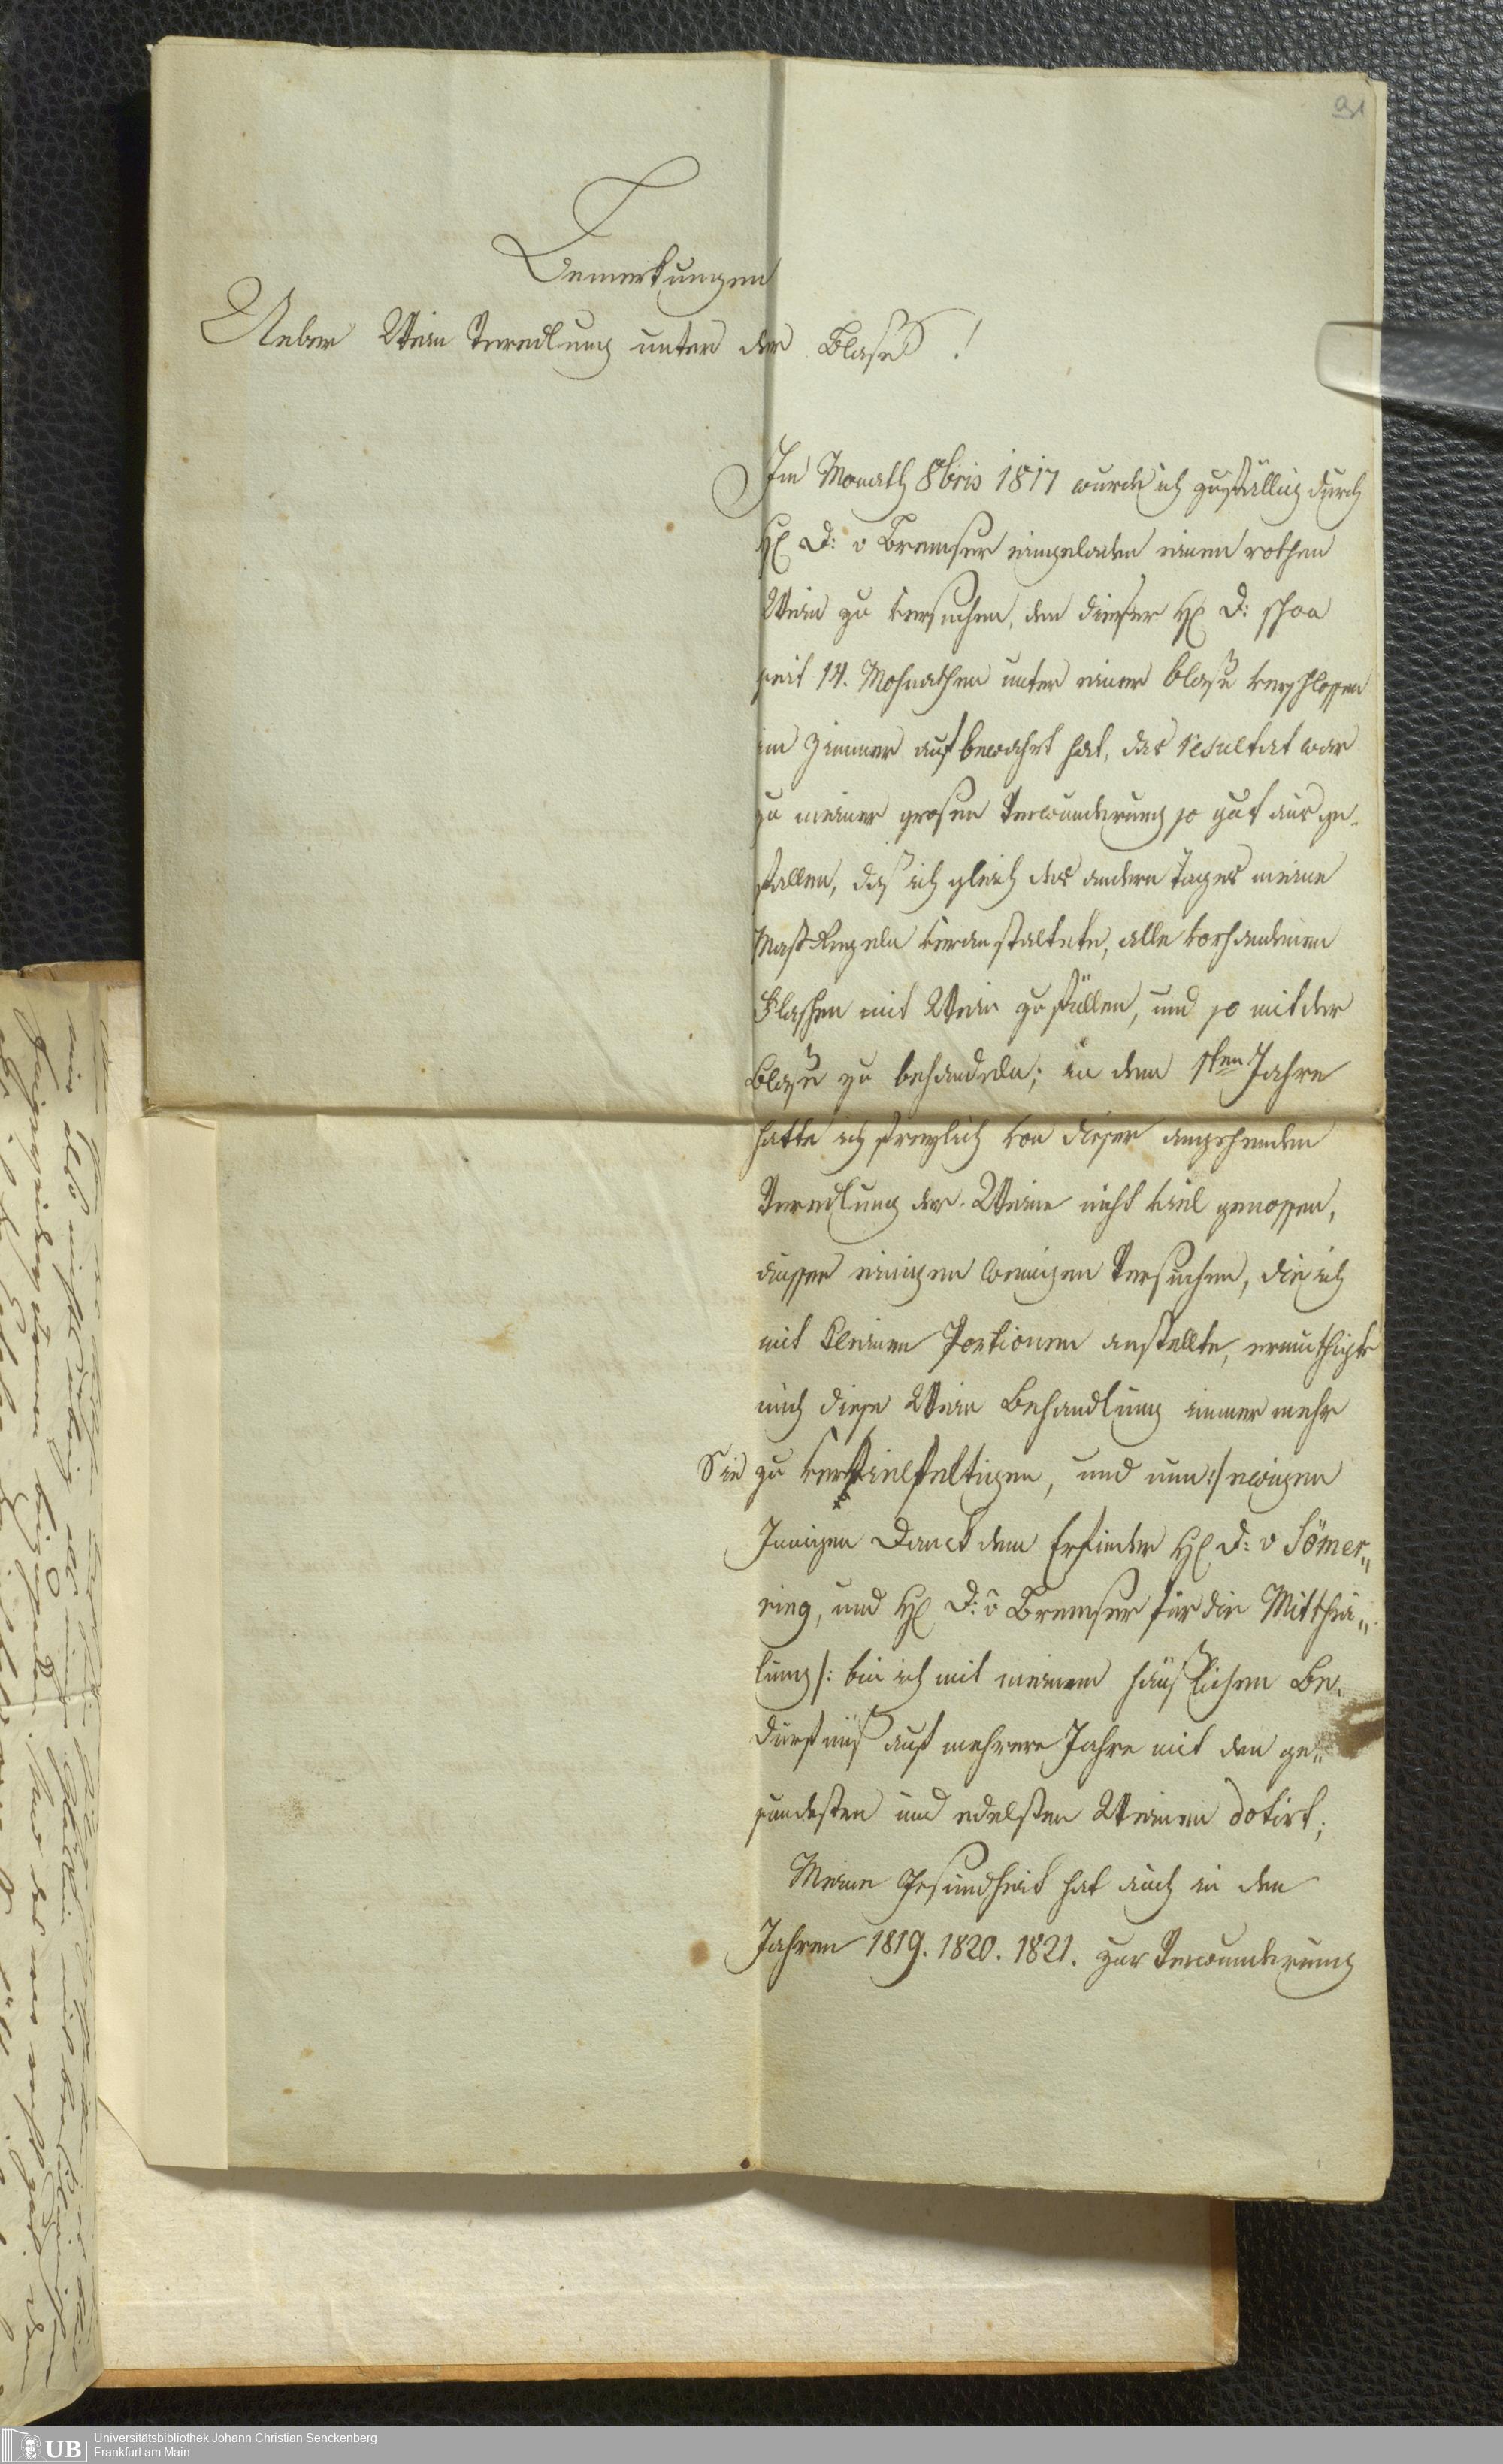 91
Bemerkungen
Ueber Wein Veredlung unter der Blase !
Im Monath 8bris 1817 wurde ich zufällig durch
H D: v Bremser eingeladen einen rothen
Wein zu versuchen, den dieser H D: schon
seit 14. Mohnathen unter einer Blase verschlossen
im Zimmer aufbewahrt hat, das resultat war
zu meiner grosen Verwunderung so gut aus ge-
fallen, daß ich gleich des andern Tages meine
Maß Regeln veranstaltete, alle vorhandenen
Flaschen mit Wein zu füllen, und so mit der
Blase zu behandeln; in dem 1ten Jahre
hatte ich freylich von dieser angehenden
Veredlung der Weine nicht viel genossen,
ausser einigen wenigen Versuchen, die ich
mit kleinen Portionen anstellte, ermuthigte
mich diese Wein Behandlung immer mehr
Sie zu vervielfeltigen, und nun :/ ewigen
Innigen Danck dem Erfinder H D: v Sömer„
ring, und H D: v Bremser für die Mitthei„
lung /: bin ich mit meinem häuslichen Be„
dürfniß auf mehrere Jahre mit den ge„
sundesten und edelsten Weinen dotirt;
Meine Gesundheit hat auch in den
Jahren 1819. 1820. 1821. zur Verwunderung
Universitätsbibliothek Johann Christian Senckenberg
Frankfurt am Main
UB